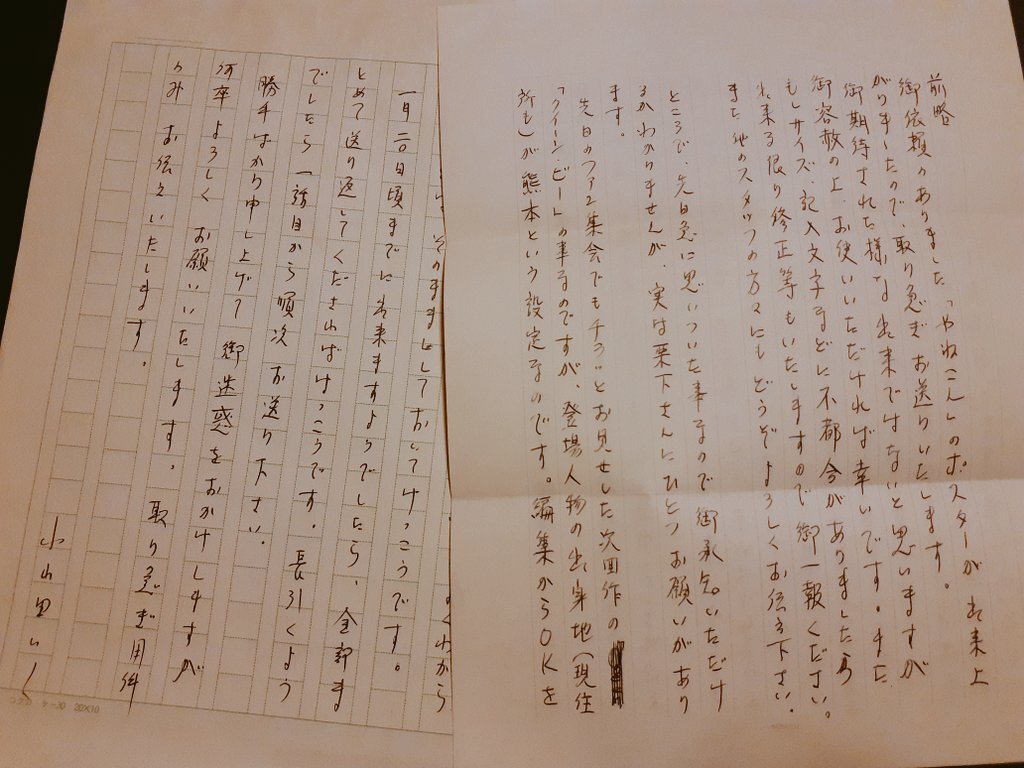 前略
御依頼のありました「やねこん」のポスターが出来上
がりましたので、取り急ぎお送りいたします。
御期待された様な出来ではないと思いますが
御容赦の上、お使いいただければ幸いです。また
もしサイズ、記入文字などに不都合がありましたら
出来る限り修正等もいたしますので御一報ください。
また他のスタッフの方々にもどうぞよろしくお伝え下さい。
ところで、先日急に思いついた事なので御承知いただけ
るかわかりませんが、実は栗下さんにひとつお願いがあり
ます。
先日のファン集会でもチラッとお見せした次回作の
「クイーン・ビー」の事なのですが、登場人物の出身地(現住
所も)が熊本という設定なのです。編集からOKを
そのままとしておいてけっこうです。
一月二〇日頃までに出来ますようでしたら、全部ま
とめて送り返してくださればけっこうです。長引くよう
でしたら一話目から順次お送り下さい。
勝手ばかり申し上げて御迷惑をおかけしますが
何卒よろしくお願いいたします。取り急ぎ用件
のみお伝えいたします。
小山田いく
20×10